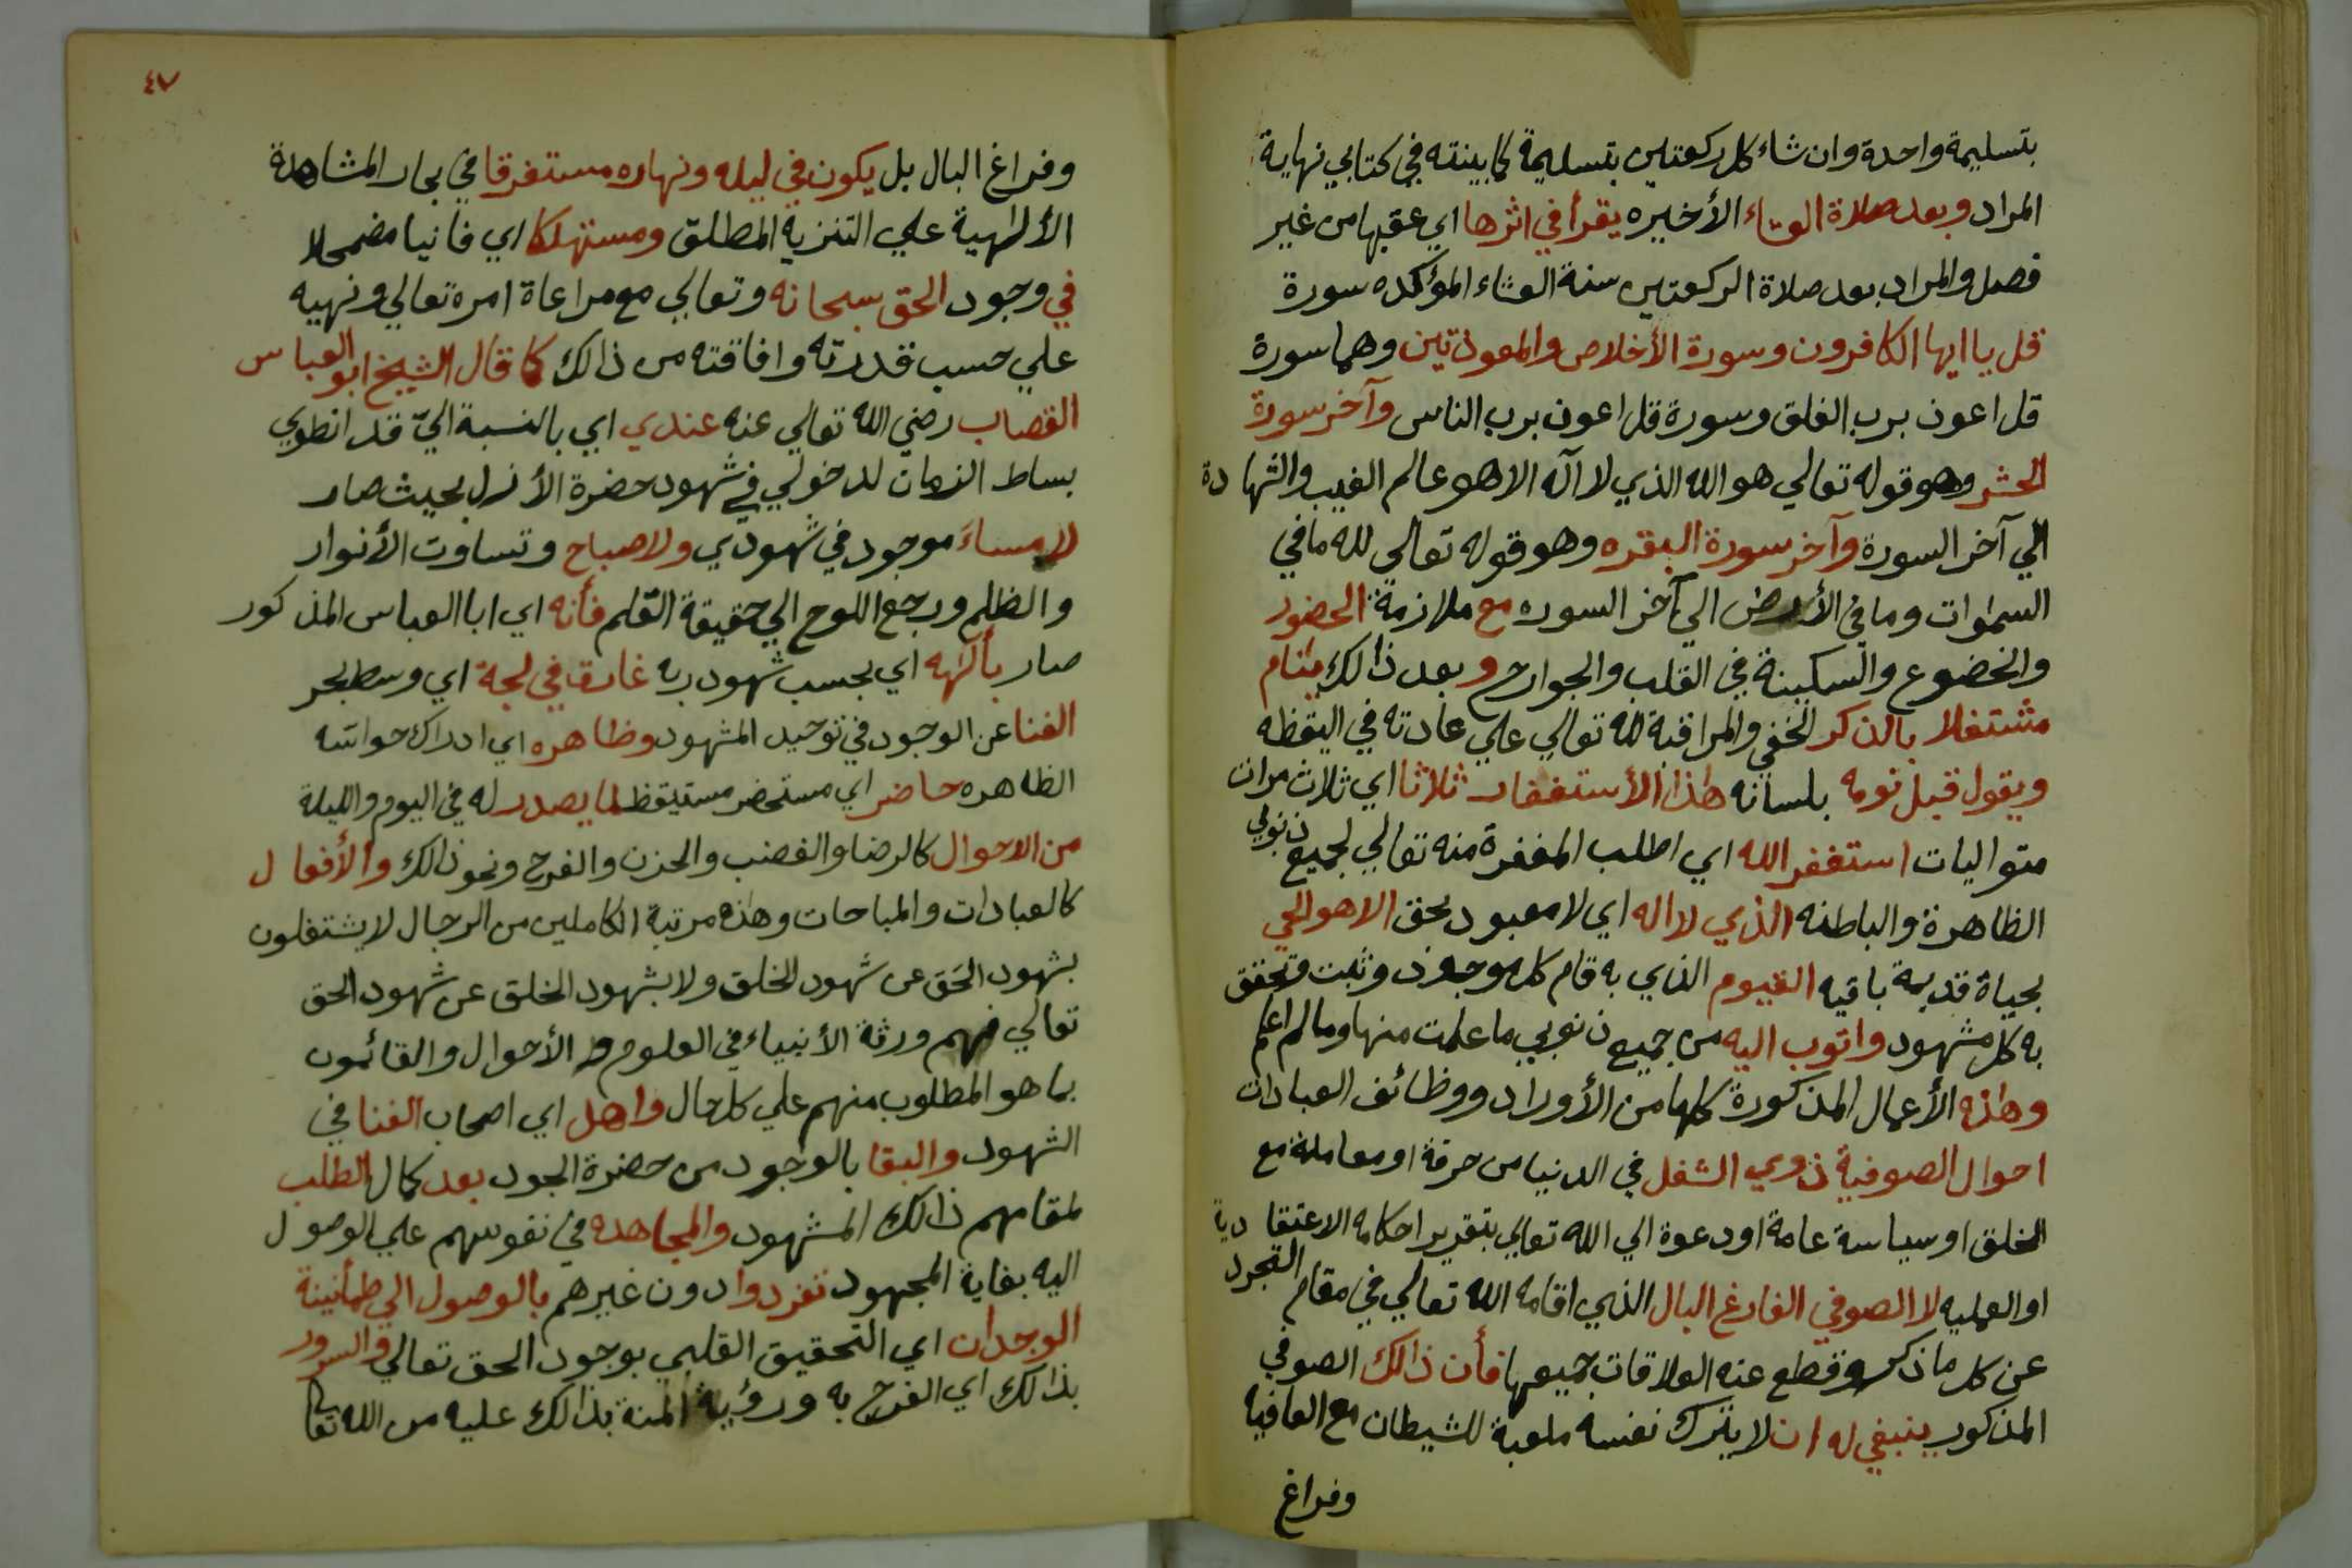 بتسليمة واحدة وان شاء كل ركعتين بتسليمة كما بينته في كتابي نهاية
المراد وبعد صلاة العشاء الأخيره يقرأ في اثرها اي عقبها من غير
فصل والمراد بعد صلاة الركعتين سنة العشاء المؤكده سورة
قل يا ايها الكافرون وسورة الأخلاص والمعوذتين وهما سورة
قل اعوذ برب الفلق وسورة قل اعوذ برب الناس وآخر سورة
الحشر وهو قوله تعالي هو الله الذي لا آله الا هو عالم الغيب والشهادة
الي آخر السورة وآخر سورة البقره وهو قوله تعالي لله ما في
السموات وما في الأرض الي آخر السوره مع ملازمة الحضور
والخضوع والسكينة في القلب والجوارح وبعد ذالك ينام
مشتغلا بالذكر الخفي والمراقبة لله تعالي علي عادته في اليقظه
ويقول قبل نومه بلسانه هذا الأستغفار ثلاثا اي ثلاث مرات
متواليات استغفر الله اي اطلب المغفرة منه تعالي لجميع ذنوبي
الظاهرة والباطنه الذي لا اله اي لا معبود بحق الا هو الحي
بحياة قديمة باقيه القيوم الذي به قام كل موجود وثبت وتحقق
به كل مشهود واتوب اليه من جميع ذنوبي ما علمت منها وما لم اعلم
وهذه الأعمال المذكورة كلها من الأوراد ووظائف العبادات
احوال الصوفية ذوي الشغل في الدنيا من حرفة او معاملة مع
الخلق او سياسة عامة او دعوة الي الله تعالي بتقرير احكامه الاعتقادية
او العمليه لا الصوفي الفارغ البال الذي اقامه الله تعالي في مقام التجرد
عن كل ما ذكر وقطع عنه العلاقات جميعها فأن ذالك الصوفي
المذكور ينبغي له ان لا يترك نفسه ملعبة للشيطان مع العافيه
وفراغ
٤٧
وفراغ البال بل يكون في ليله ونهاره مستغرقا في بحار المشاهدة
الألهية علي التنزيه المطلق ومستهلكا اي فانيا مضمحلا
في وجود الحق سبحانه وتعالي مع مراعاة امره تعالي ونهيه
علي حسب قدرته وافاقته من ذالك كما قال الشيخ ابو العباس
القصاب رضي الله تعالي عنه عندي اي بالنسبة اليّ قد انطوي
بساط الزمان لدخولي في شهود حضرة الأزل بحيث صار
لا مساء موجود في شهودي ولا صباح وتساوت الأنوار
والظلم ورجع اللوح الي حقيقة القلم فأنه اي ابا العباس المذكور
صار بألهه اي بحسب شهود ربه غارق في لجة اي وسط بحر
الفنا عن الوجود في توحيد المشهود وظاهره اي ادراك حواسه
الظاهره حاضر اي مستحضر مستيقظ لما يصدر له في اليوم والليلة
من الاحوال كالرضا والغضب والحزن والفرح ونحو ذالك والأفعال
كالعبادات والمباحات وهذه مرتبة الكاملين من الرجال لا يشتغلون
بشهود الحق عن شهود الخلق ولا بشهود الخلق عن شهود الحق
تعالي فهم ورثة الأنبياء في العلوم و الأحوال والقائمون
بما هو المطلوب منهم علي كل حال واهل اي اصحاب الفنا في
الشهود والبقا بالوجود من حضرة الجود بعد كمال الطلب
لمقامهم ذالك المشهود والمجاهده في نفوسهم علي الوصول
اليه بغاية المجهود تفردوا دون غيرهم بالوصول الي طمأنينة
الوجدان اي التحقيق القلبي بوجود الحق تعالي والسرور
بذالك اي الفرح به ورؤية المنة بذالك عليه من الله تعالي